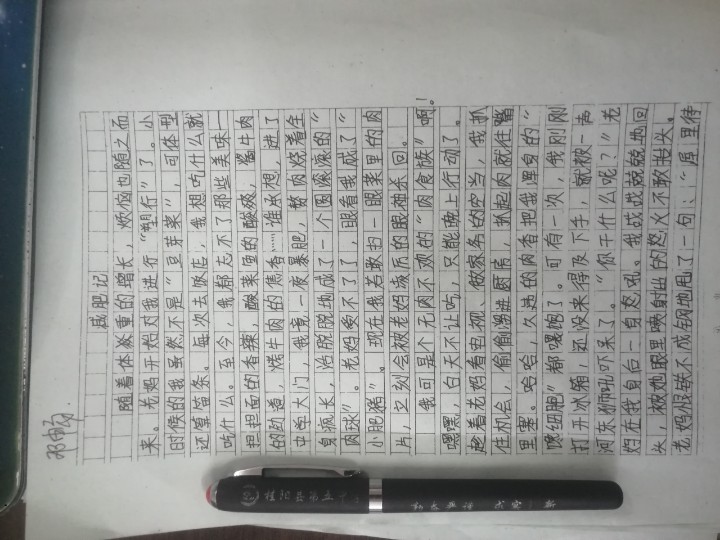 减肥记
随着体重的增长，烦恼也随之而
来。老妈开始对我进行“塑行”了。小
时候的我虽然不是“豆芽菜”，可体型
还算苗条。每次去饭店，我想吃什么就
吃什么。至今，我都忘不了那些美味—
担担面的香辣，酸菜鱼的酸爽，酱牛肉
的红道，烤牛肉的焦香……谁承想，进了
中学大门，我竟一夜暴肥，赘肉绕着全
身疯长，活脱脱地成了一个圆滚滚的“
肉球”。老妈受不了了，眼看我成了“
小肥猪”。现在我若敢扫一眼菜里的肉
片，立刻会被老妈残厉的眼神杀回。
我可是个无肉不欢的“肉食族”啊！
嘿嘿，白天不让吃，只能晚上行动了。
趁着老妈看电视、做家务的空当，我抓
住机会，偷偷溜进厨房，扒起肉就往嘴
里塞。哈哈，久违的肉香把我浑身的“
馋细胞”都喂饱了。可有一次，我刚刚
打开冰箱，还没来得及下手，就被一声
河东狮吼吓呆了。“你干什么呢？”老
妈在我身后一身怒吼。我战战兢兢地回
头，被她眼里喷射出的怒火不敢抬头。
老妈恨铁不成钢地甩了一句：“屋里待
桂阳县第五中